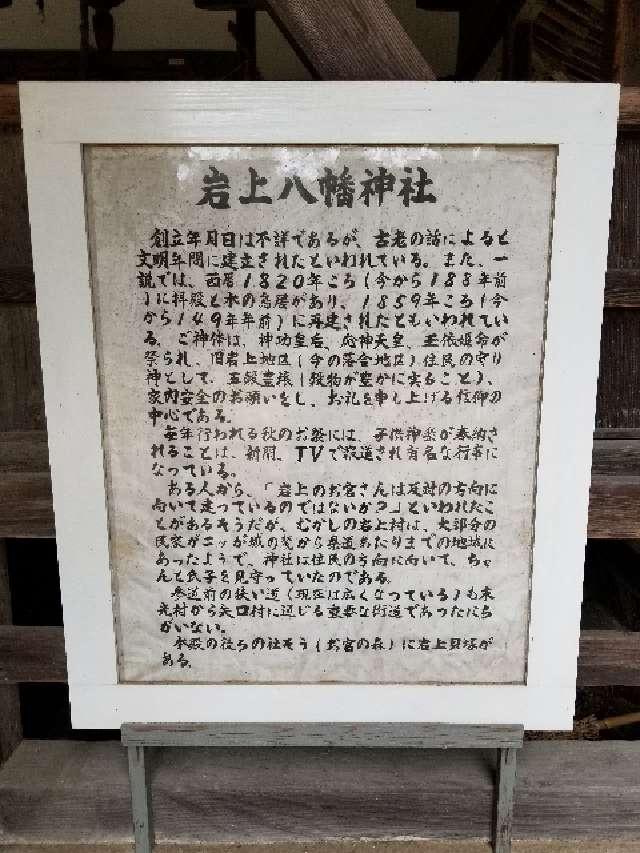 岩上八幡神社
創立年月日は不詳であるが、古老の話によると
文明年間に建立されたといわれている。また、一
説では、西暦1820年ごろ(今から188年前
)に拝殿と木の鳥居があり、1859年ころ(今
から149年年前)に再建されたともいわれてい
る。ご神体は、神功皇后、応神天皇、玉依姫命が
祭られ、旧岩上地区(今の落合地区)住民の守り
神として、五穀豊穣(穀物が豊かに実ること)、
家内安全のお願いをし、お礼を申し上げる信仰の
中心である。
毎年行われる秋のお祭には、子供神楽が奉納さ
れることは、新聞、TVで放送され有名な行事に
なっている。
ある人から、「岩上のお宮さんは反対の方向に
向いて建っているのではないか?」といわれたこ
とがあるそうだが、むかしの岩上村は、大部分の
民家が三ッが城の麓から県道あたりまでの地域に
あったようで、神社は住民の方向に向いて、ちゃ
んと氏子を見守っていたのである。
参道前の狭い道(現在は広くなっている)も末
光村から矢口村に通じる重要な街道であったにち
がいない。
本殿の後ろの社そう(お宮の森)に岩上貝塚が
ある。